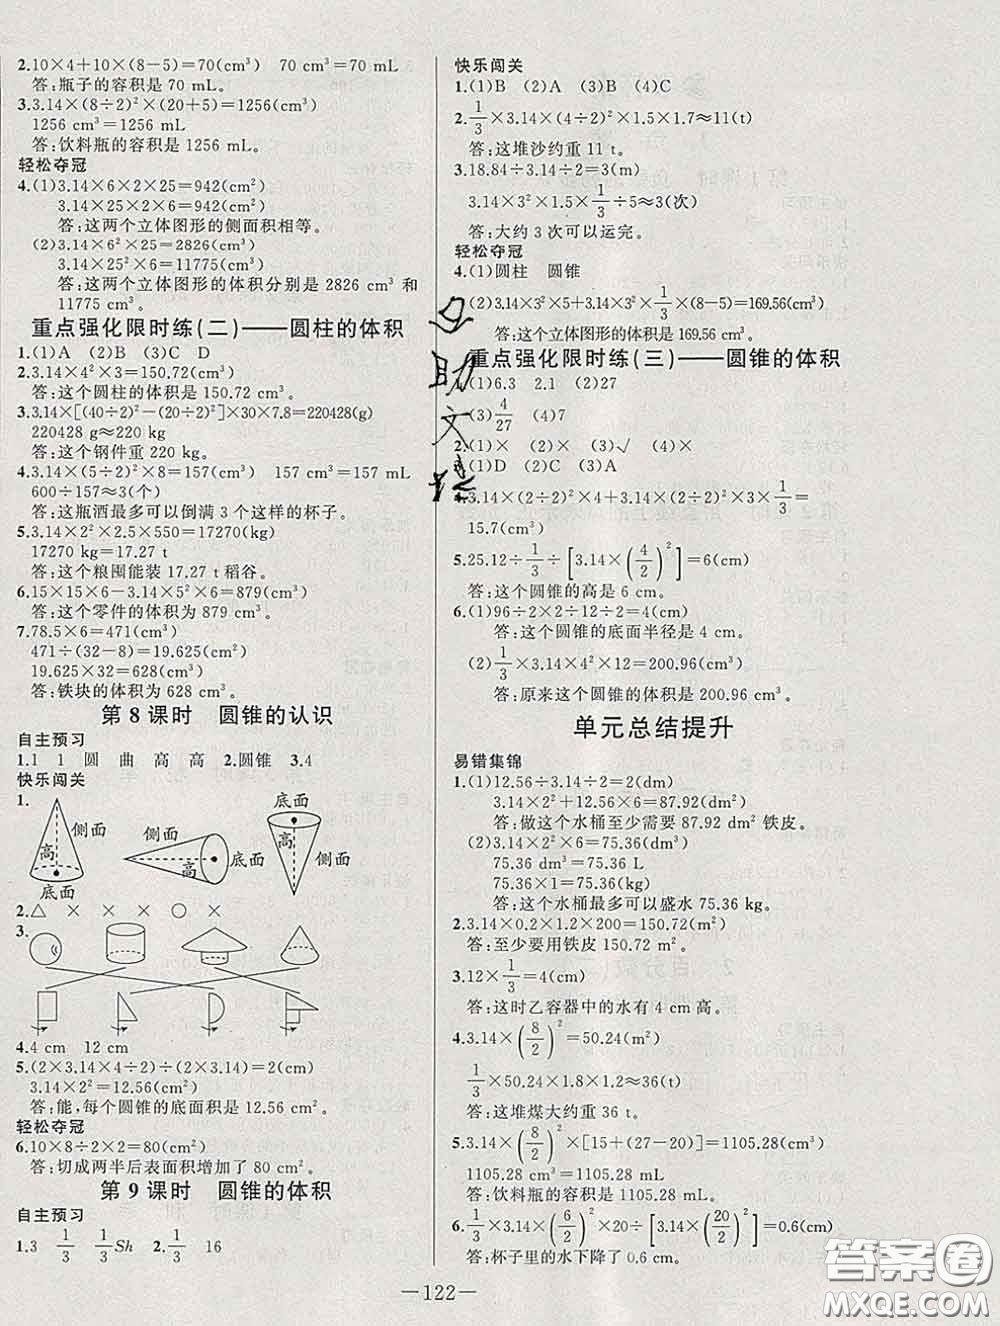 2.10×4+10×(8−5)=70(cm³)　70 cm³=70 mL
答:瓶子的容积是 70 mL。
3.3.14×(8÷2)²×(20+5)=1256(cm³)
1256 cm³=1256 mL
答:饮料瓶的容积是 1256 mL。
轻松夺冠
4.(1)3.14×6×2×25=942(cm²)
3.14×25×2×6=942(cm²)
答:这两个立体图形的侧面积相等。
(2)3.14×6²×25=2826(cm³)
3.14×25²×6=11775(cm³)
答:这两个立体图形的体积分别是 2826 cm³ 和
11775 cm³。
重点强化限时练(二)——圆柱的体积
1.(1)A　(2)B　(3)C　D
2.3.14×4²×3=150.72(cm³)
答:这个圆柱的体积是 150.72 cm³。
3.3.14×[(40÷2)²−(20÷2)²]×30×7.8=220428(g)
220428 g≈220 kg
答:这个钢件重 220 kg。
4.3.14×(5÷2)²×8=157(cm³)　157 cm³=157 mL
600÷157≈3(个)
答:这瓶酒最多可以倒满 3 个这样的杯子。
5.3.14×2²×2.5×550=17270(kg)
17270 kg=17.27 t
答:这个粮囤能装 17.27 t 稻谷。
6.15×15×6−3.14×5²×6=879(cm³)
答:这个零件的体积为 879 cm³。
7.78.5×6=471(cm³)
471÷(32−8)=19.625(cm²)
19.625×32=628(cm³)
答:铁块的体积为 628 cm³。
第 8 课时　圆锥的认识
自主预习
1.1　1　圆　曲　高　高　2.圆锥　3.4
快乐闯关
1.
侧面　高　底面
侧面　高　底面
底面　高　侧面
2.△　×　×　×　○　×
3.
4.4 cm　12 cm
5.(2×3.14×4÷2)÷(2×3.14)=2(cm)
3.14×2²=12.56(cm²)
答:能,每个圆锥的底面积是 12.56 cm²。
轻松夺冠
6.10×8÷2×2=80(cm²)
答:切成两半后表面积增加了 80 cm²。
第 9 课时　圆锥的体积
自主预习
1.3　1/3　1/3Sh　2.1/3　16
快乐闯关
1.(1)B　(2)A　(3)B　(4)C
2.1/3×3.14×(4÷2)²×1.5×1.7≈11(t)
答:这堆沙约重 11 t。
3.18.84÷3.14÷2=3(m)
3.14×3²×1.5×1/3÷5≈3(次)
答:大约 3 次可以运完。
轻松夺冠
4.(1)圆柱　圆锥
(2)3.14×3²×5+3.14×3²×1/3×(8−5)=169.56(cm³)
答:这个立体图形的体积是 169.56 cm³。
重点强化限时练(三)——圆锥的体积
1.(1)6.3　2.1　(2)27
(3)4/27　(4)7
2.(1)×　(2)×　(3)√　(4)×
(1)D　(2)C　(3)A
4.3.14×(2÷2)²×4+3.14×(2÷2)²×3×1/3=
15.7(cm³)
5.25.12÷1/3÷[3.14×(4/2)²]=6(cm)
答:这个圆锥的高是 6 cm。
6.(1)96÷2×2÷12÷2=4(cm)
答:这个圆锥的底面半径是 4 cm。
(2)1/3×3.14×4²×12=200.96(cm³)
答:原来这个圆锥的体积是 200.96 cm³。
单元总结提升
易错集锦
1.(1)12.56÷3.14÷2=2(dm)
3.14×2²+12.56×6=87.92(dm²)
答:做这个水桶至少需要 87.92 dm² 铁皮。
(2)3.14×2²×6=75.36(dm³)
75.36 dm³=75.36 L
75.36×1=75.36(kg)
答:这个水桶最多可以盛水 75.36 kg。
2.3.14×0.2×1.2×200=150.72(m²)
答:至少要用铁皮 150.72 m²。
3.12×1/3=4(cm)
答:这时乙容器中的水有 4 cm 高。
4.3.14×(8/2)²=50.24(m²)
1/3×50.24×1.8×1.2≈36(t)
答:这堆煤大约重 36 t。
5.3.14×(8/2)²×[15+(27−20)]=1105.28(cm³)
1105.28 cm³=1105.28 mL
答:饮料瓶的容积是 1105.28 mL。
6.1/3×3.14×(6/2)²×20÷[3.14×(20/2)²]=0.6(cm)
答:杯子里的水下降了 0.6 cm。
—122—
答案圈
MXQE.COM